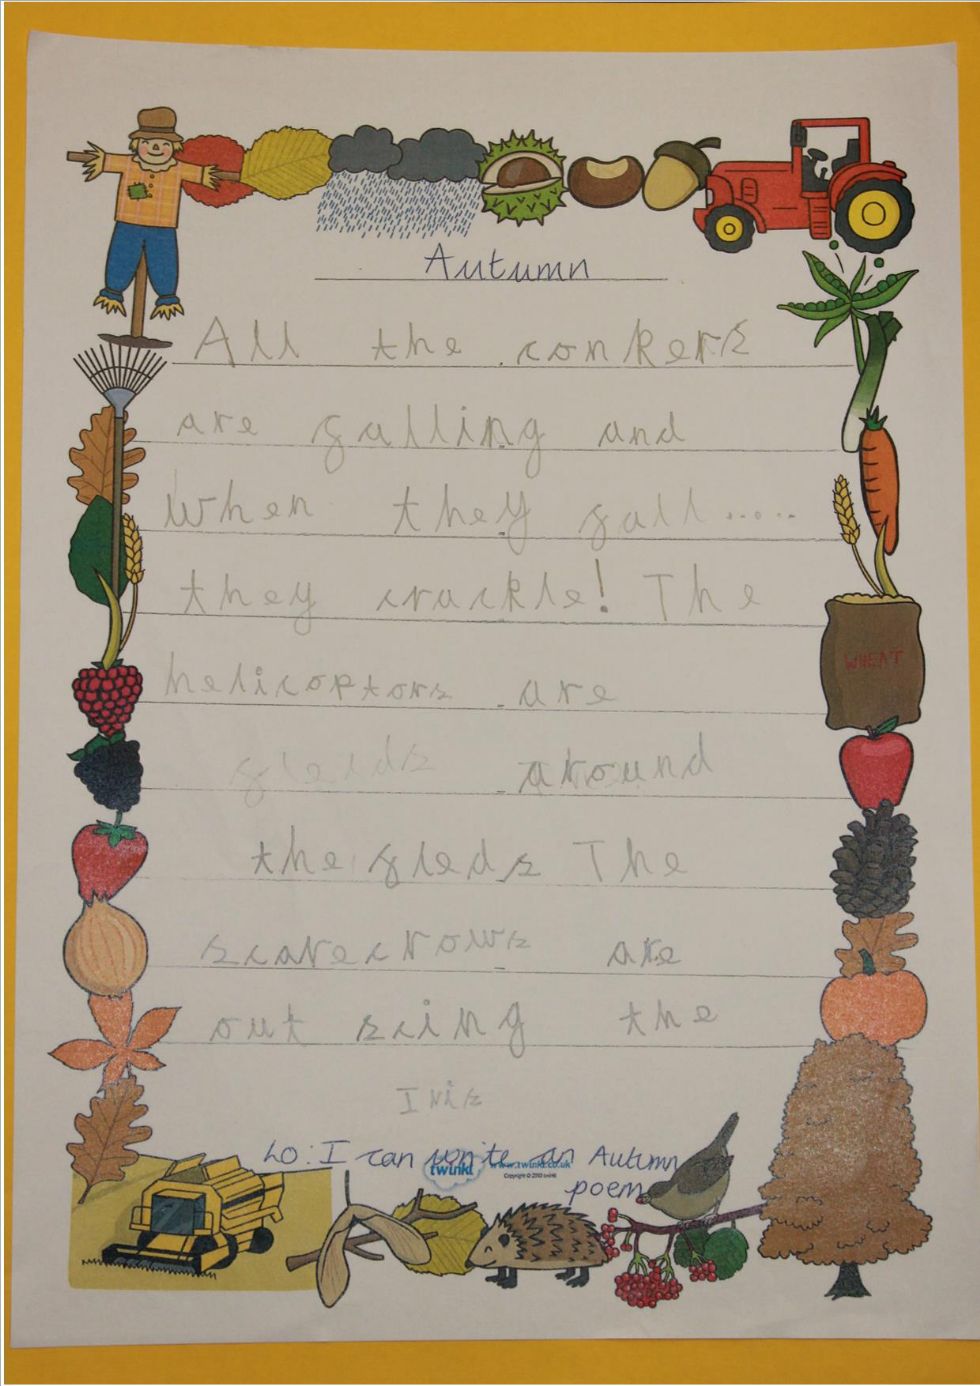 Autumn
All the conkers
are falling and
when they fall.....
they crackle! The
helicoptors are
fleids around
the fleds The
scarecrows are
out scing the
Iris
WHEAT
LO: I can write an Autumn
poem
twinkl www.twinkl.co.uk